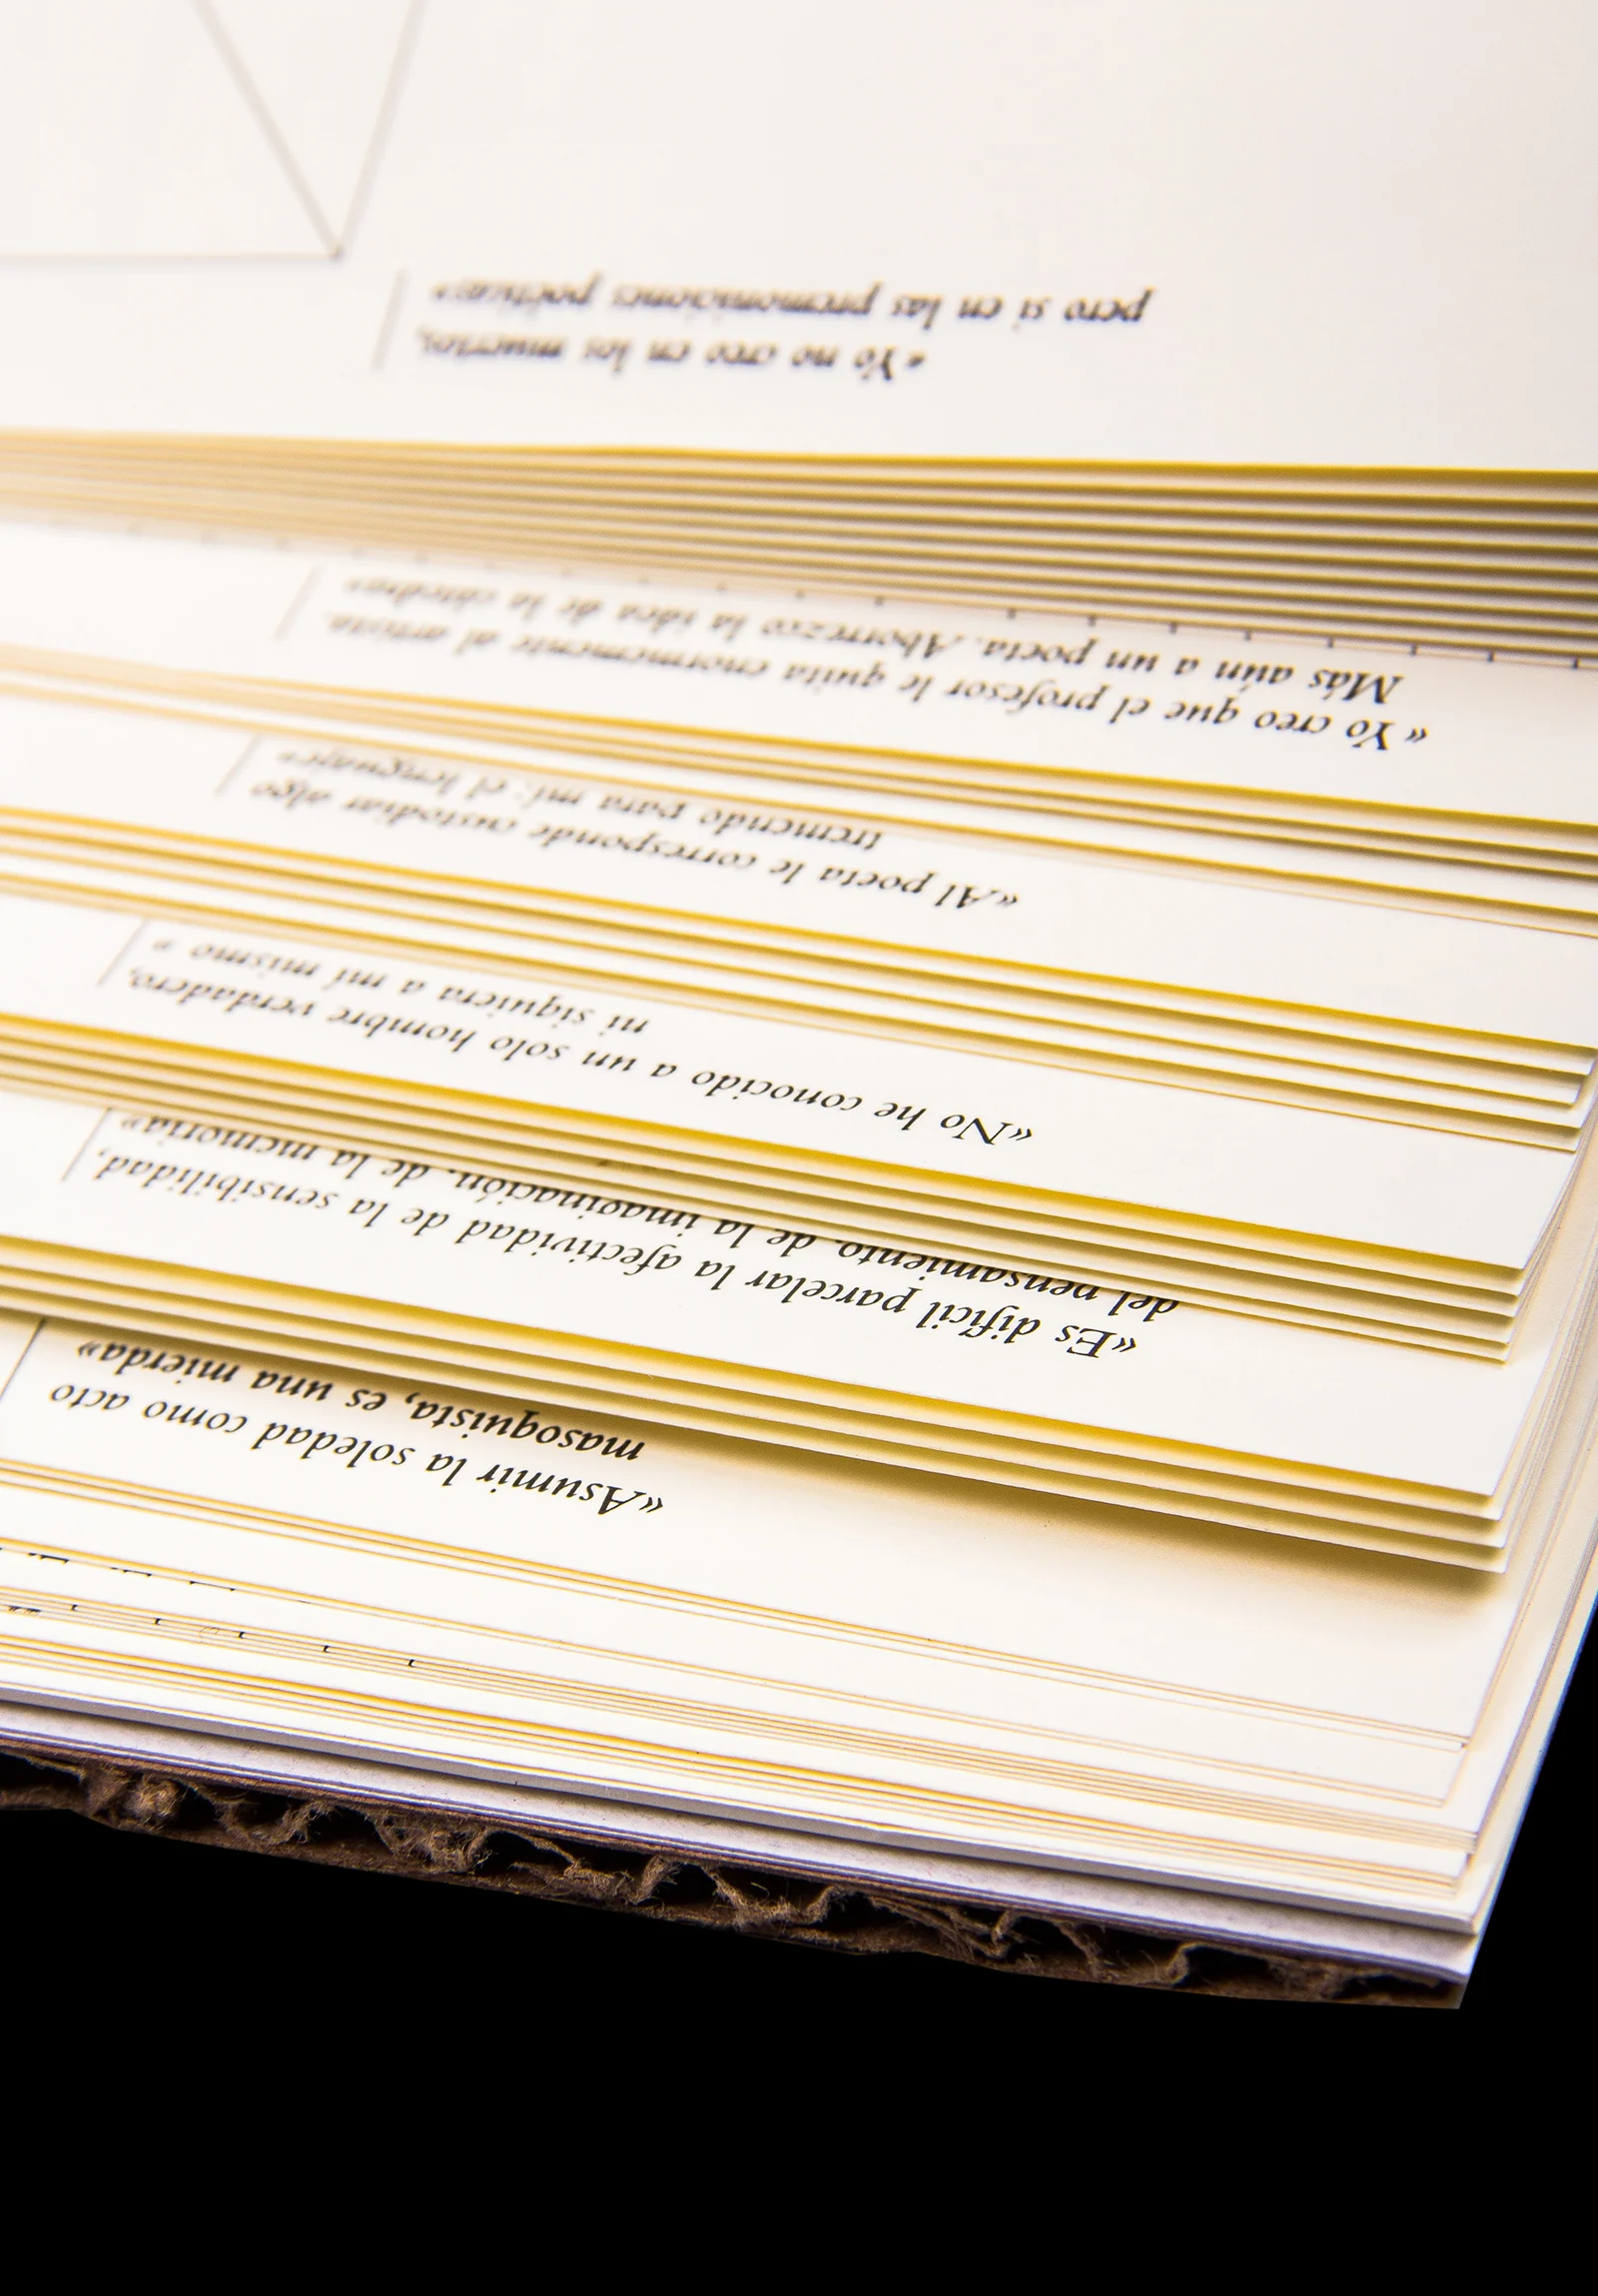 «Asumir la soledad como acto
masoquista, es una mierda»
«Es difícil parcelar la afectividad de la sensibilidad,
del pensamiento, de la imaginación, de la memoria»
«No he conocido a un solo hombre verdadero,
ni siquiera a mí mismo »
«Al poeta le corresponde custodiar algo
tremendo para mí: el lenguaje»
«Yo creo que el profesor le quita enormemente al artista.
Más aún a un poeta. Aborrezco la idea de la cátedra»
«Yo no creo en los muertos,
pero si en las premoniciones poéticas»